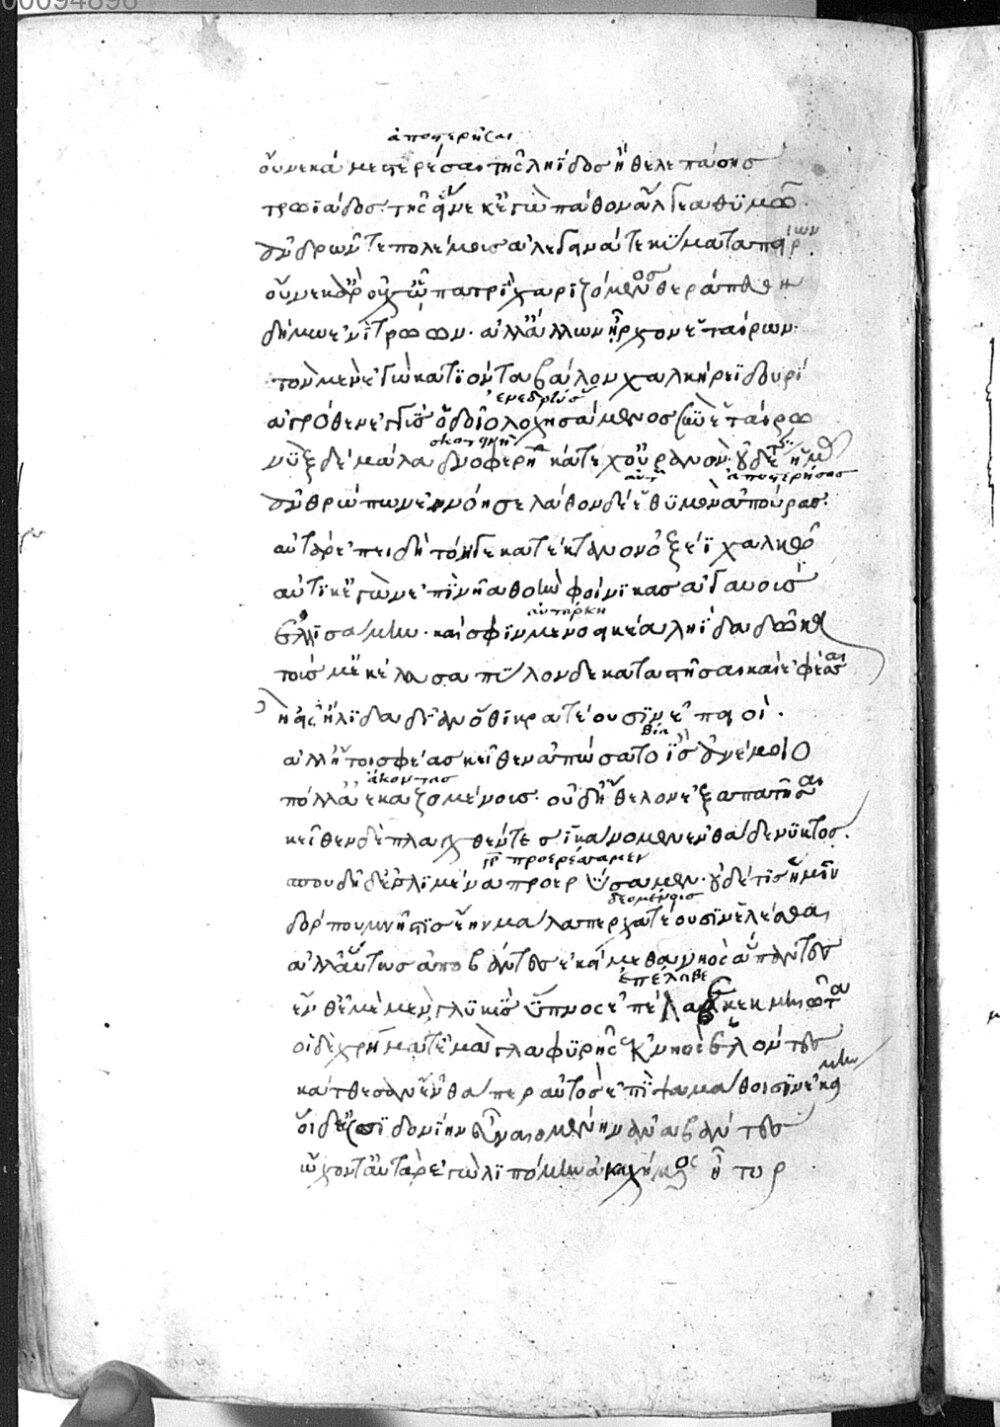 ἀποστερῆσαι
οὕνεκά με στερέσαι τῆς ληΐδος ἤθελε πάσης
τρωϊάδος. τῆς εἵνεκ' ἐγὼ πάθον ἄλγεα θυμῶ.
ἀνδρῶν τε πολέμους ἀλεγεινά τε κύματα πείρων
οὕνεκ' ἄρ' οὐχ ὧ πατρὶ χαριζόμενος θεράπευον
δήμω ἐνὶ τρώων. ἀλλ' ἄλλων ἦρχον ἑταίρων.
τὸν μὲν ἐγὼ κατιόντα βάλον χαλκήρεϊ δουρὶ
ἐνεδρεύσας
ἀγρόθεν ἐγγὺς ὁδοῖο λοχησάμενος σὺν ἑταίρω
σκοτεινὴ
νὺξ δὲ μάλα δνοφερὴ κάτεχ' οὐρανὸν. οὐδέ τις ἡμέας
αὐτὸν ἀποστερήσας
ἀνθρώπων ἐνόησε λάθον δέ ἑ θυμὸν ἀπούρας.
αὐτὰρ ἐπειδὴ τόνδε κατέκτανον ὀξέϊ χαλκῶ
αὐτίκ' ἐγὼν ἐπὶ νῆα θοὴν φοίνικας ἀγαυοὺς
αὐτάρκη
ἐλλισάμην. καί σφιν μενοεικέα ληΐδα δῶκα
τούς μ' ἐκέλευσα πύλονδε καταστῆσαι καὶ ἐφέσαι
ἢ εἰς ἤλιδα δῖαν ὅθι κρατέουσιν ἐπειοί.
βία
ἀλλ' ἤτοι σφέας κεῖθεν ἀπώσατο ἲς ἀνέμοιο
ἄκοντας
πόλλ' ἀεκαζομένους. οὐδ' ἤθελον ἐξαπατῆσαι
κεῖθεν δὲ πλαγχθέντες ἱκάνομεν ἐνθάδε νυκτός.
γρ προερέσσαμεν
σπουδῆ δ' ἐς λιμένα προερύσαμεν. οὐδέ τις ἡμῖν
δεομένοις
δόρπου μνῆστις ἔην μάλα περ χατέουσιν ἑλέσθαι
ἀλλ' αὔτως ἀποβάντες ἐκείμεθα νηὸς ἅπαντες
ἐπέλαβε
ἔνθ' ἐμὲ μὲν γλυκὺς ὕπνος ἐπέλλαβε κεκμηῶτα
οἱ δὲ χρήματ' ἐμὰ γλαφυρῆς ἐκ νηὸς ἑλόντες
κάτθεσαν ἔνθα περ αὐτὸς ἐπὶ ψαμάθοισιν ἐκείμην
οἱ δ' ἐς σιδονίην εὖ ναιομένην ἀναβάντες
ὤχοντ' αὐτὰρ ἐγὼ λιπόμην ἀκαχήμενος ἦτορ